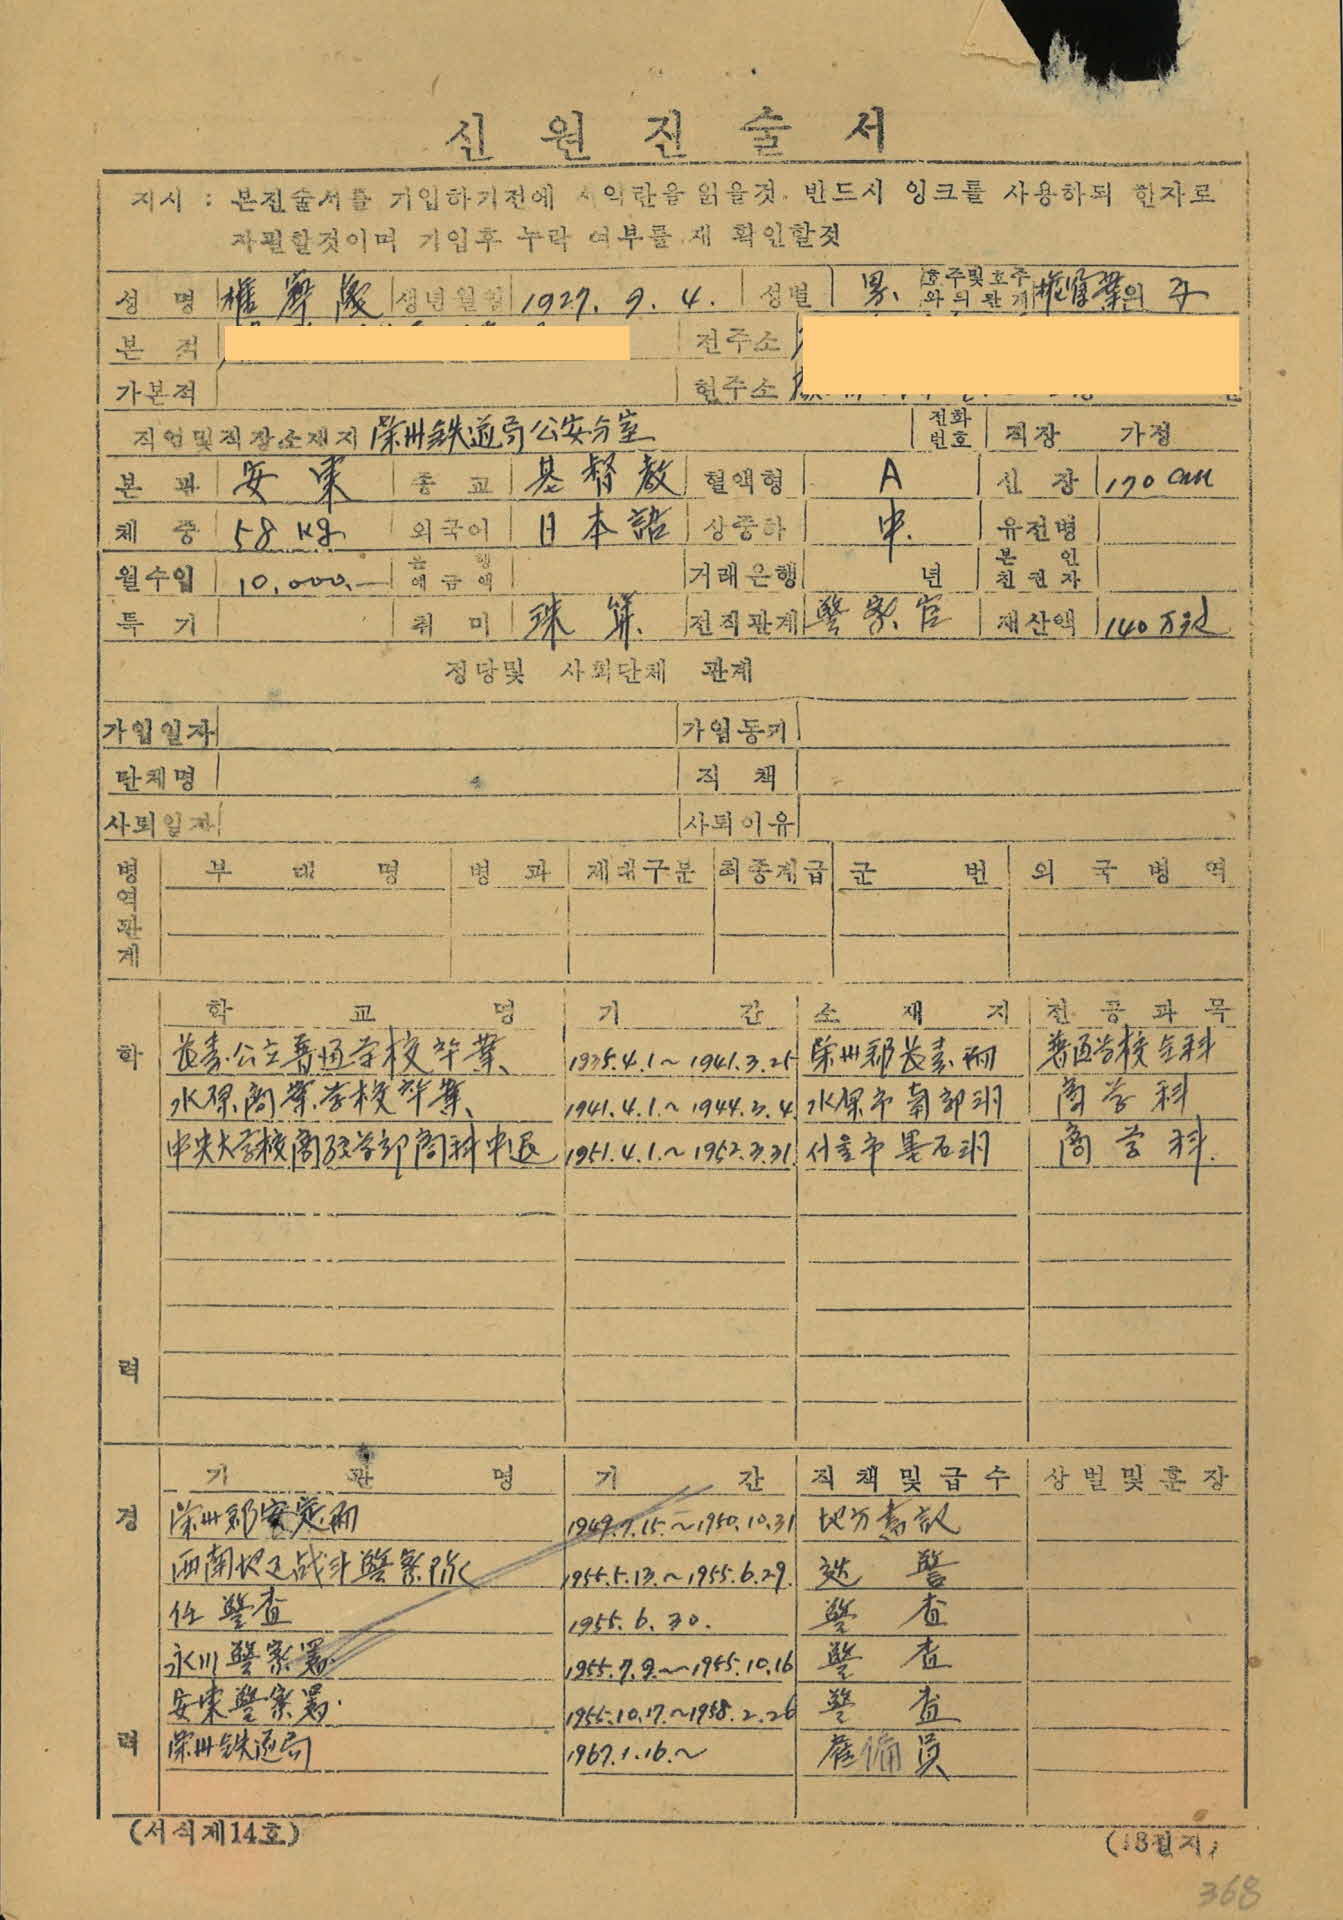 신 원 진 술 서
지시 : 본진술서를 기입하기전에 서약란을 읽을것. 반드시 잉크를 사용하되 한자로
자필할것이며 기입후 누락 여부를 재 확인할것
성 명 權 寧 생년월일 1927. 9. 4. 성별 男. 호주및호주와의관계 의 子
본 적 전주소
가본적 현주소
직업및직장소재지 榮州鉄道局公安分室 전화번호 직장 가정
본 관 安東 종 교 基督教 혈액형 A 신 장 170 cm
체 중 58 kg. 외국어 日本語 상중하 中. 유전병
월수입 10,000.— 은행예금액 거래은행 년 본인친권자
특 기 취 미 珠算. 전직관계 警察官 재산액 140万원
정당및 사회단체 관계
가입일자 가입동기
단체명 직 책
사퇴일자 사퇴이유
병역관계 부 대 명 병 과 제대구분 최종계급 군 번 외 국 병 역
학 력 학 교 명 기 간 소 재 지 전 공 과 목
長壽公立普通学校卒業 1935.4.1~1941.3.25 榮州郡長壽面 普通学校全科
水原商業学校卒業 1941.4.1.~1944.3.4. 水原市南部洞 商学科
中央大学校商経学部商科中退 1951.4.1.~1952.3.31. 서울市黑石洞 商学科.
경 력 기 관 명 기 간 직책및급수 상벌및훈장
榮州郡安定面 1949.7.15.~1950.10.31 地方書記
西南地区战斗警察隊 1955.5.13.~1955.6.29. 警
任警査 1955.6.30. 警査
永川警察署. 1955.7.9.~1955.10.16 警査
安東警察署. 1955.10.17.~1958.2.26 警査
榮州鉄道局 1967.1.16.~ 雇傭員
(서식제14호)
(18절지)
368